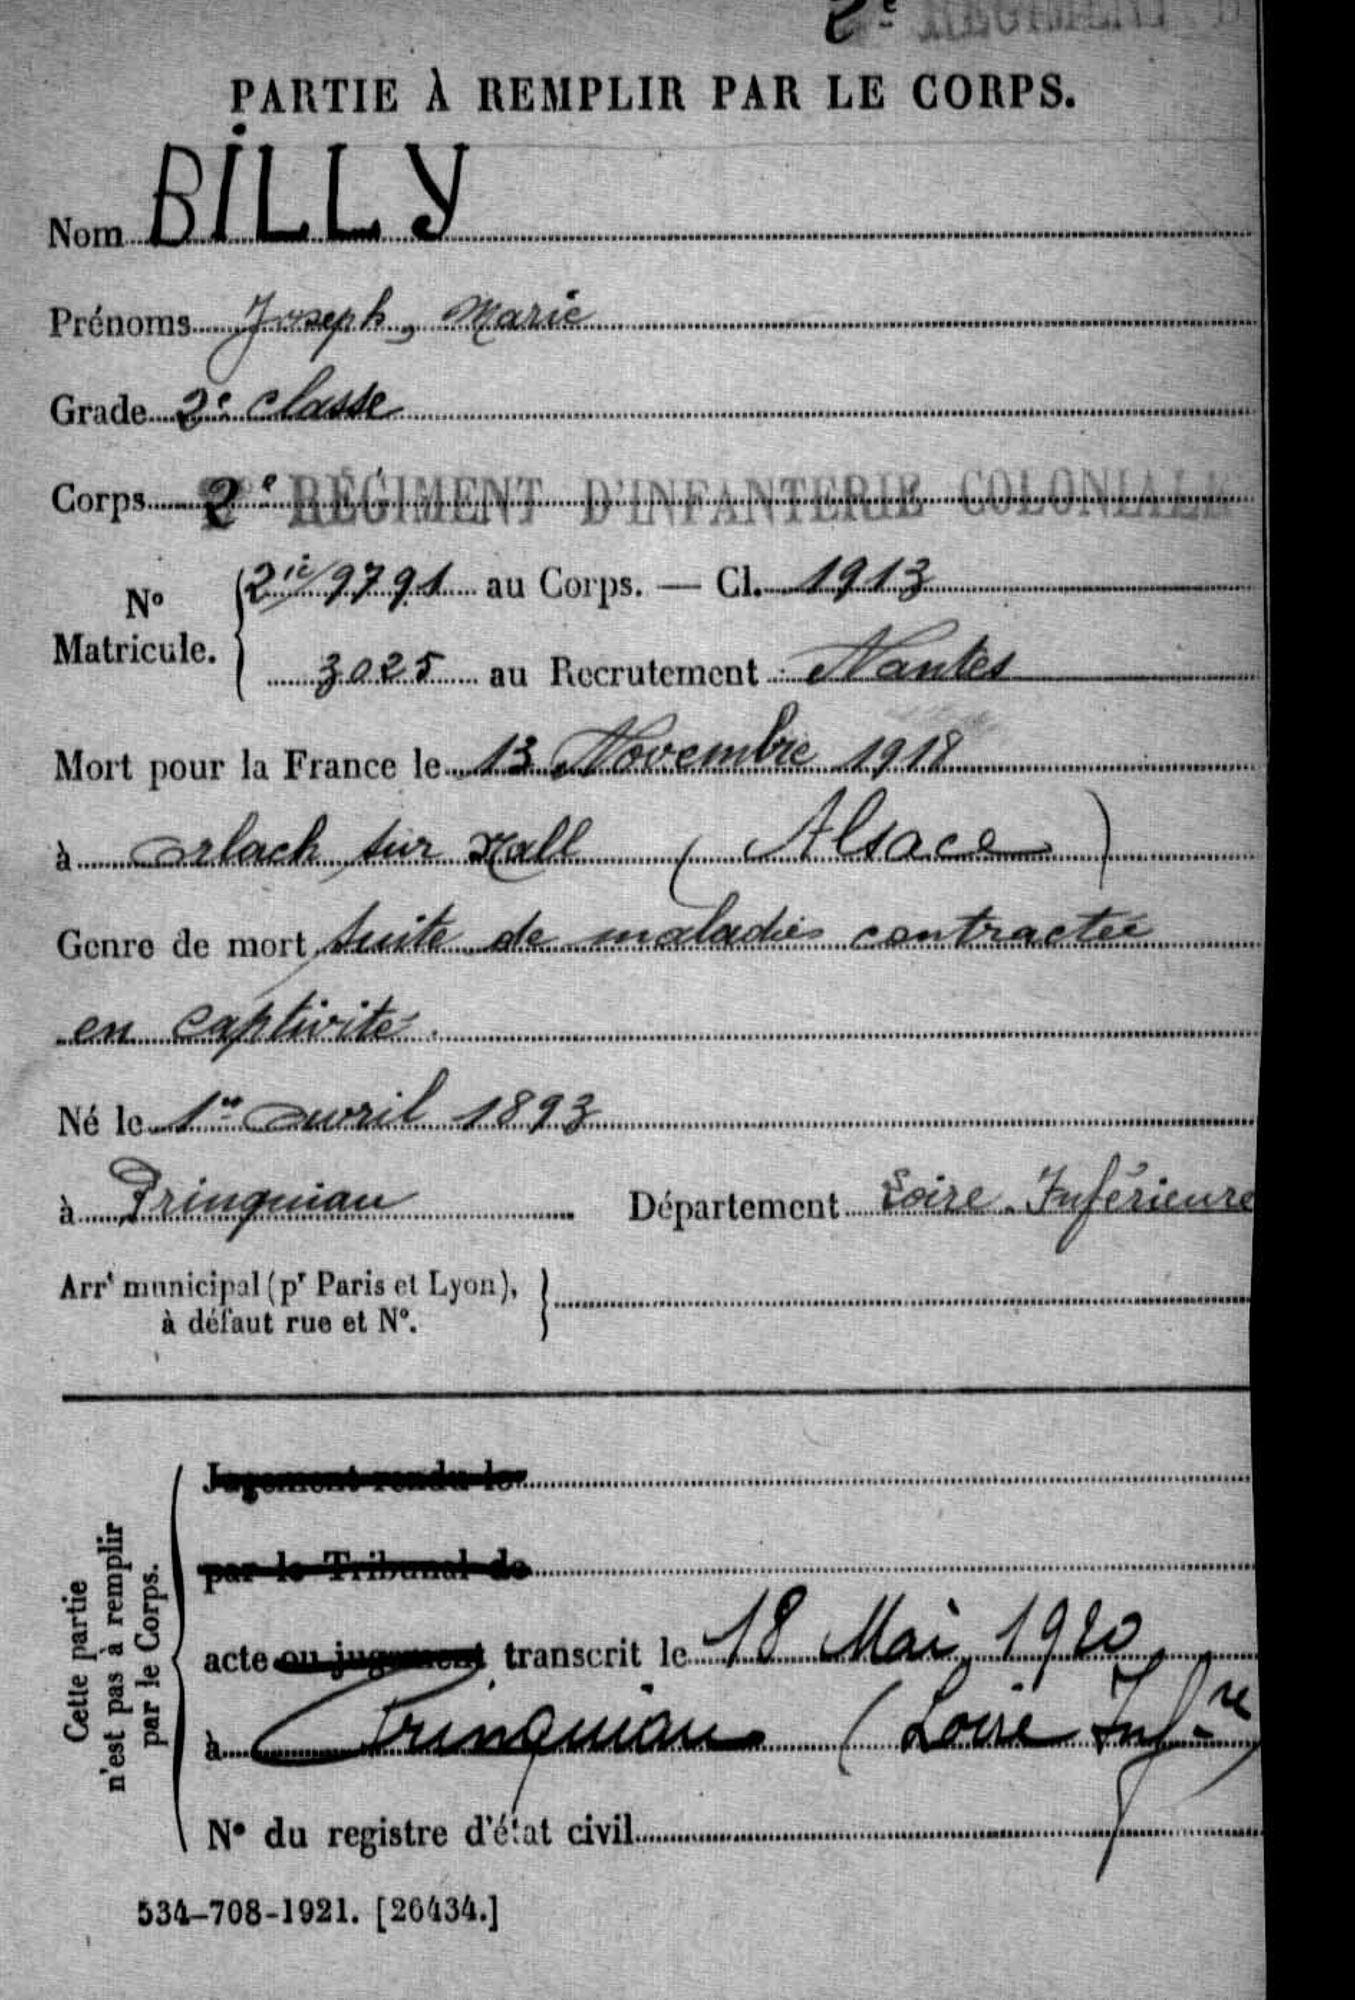 2e RÉGIMENT D'
PARTIE À REMPLIR PAR LE CORPS.
Nom BILLY
Prénoms Joseph, Marie
Grade 2e classe
Corps 2e RÉGIMENT D'INFANTERIE COLONIALE
No Matricule. { 2ic/9791 au Corps. — Cl. 1913
3025 au Recrutement Nantes
Mort pour la France le 13 Novembre 1918
à sur (Alsace)
Genre de mort suite de maladies contractée
en captivité.
Né le 1er avril 1893
à Prinquiau Département Loire-Inférieure
Arrt municipal (pr Paris et Lyon), }
à défaut rue et No.
Cette partie
n'est pas à remplir
par le Corps.
Jugement rendu le
par le Tribunal de
acte ou jugement transcrit le 18 Mai 1920
à Prinquiau (Loire Infre)
No du registre d'état civil
534-708-1921. [26434.]